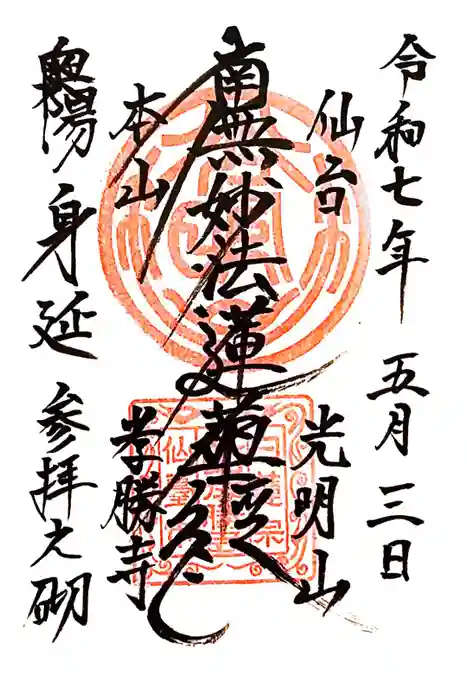 令和七年 五月三日
仙台 光明山
南無妙法蓮華経
本山 孝勝寺
奥陽身延 参拝之砌